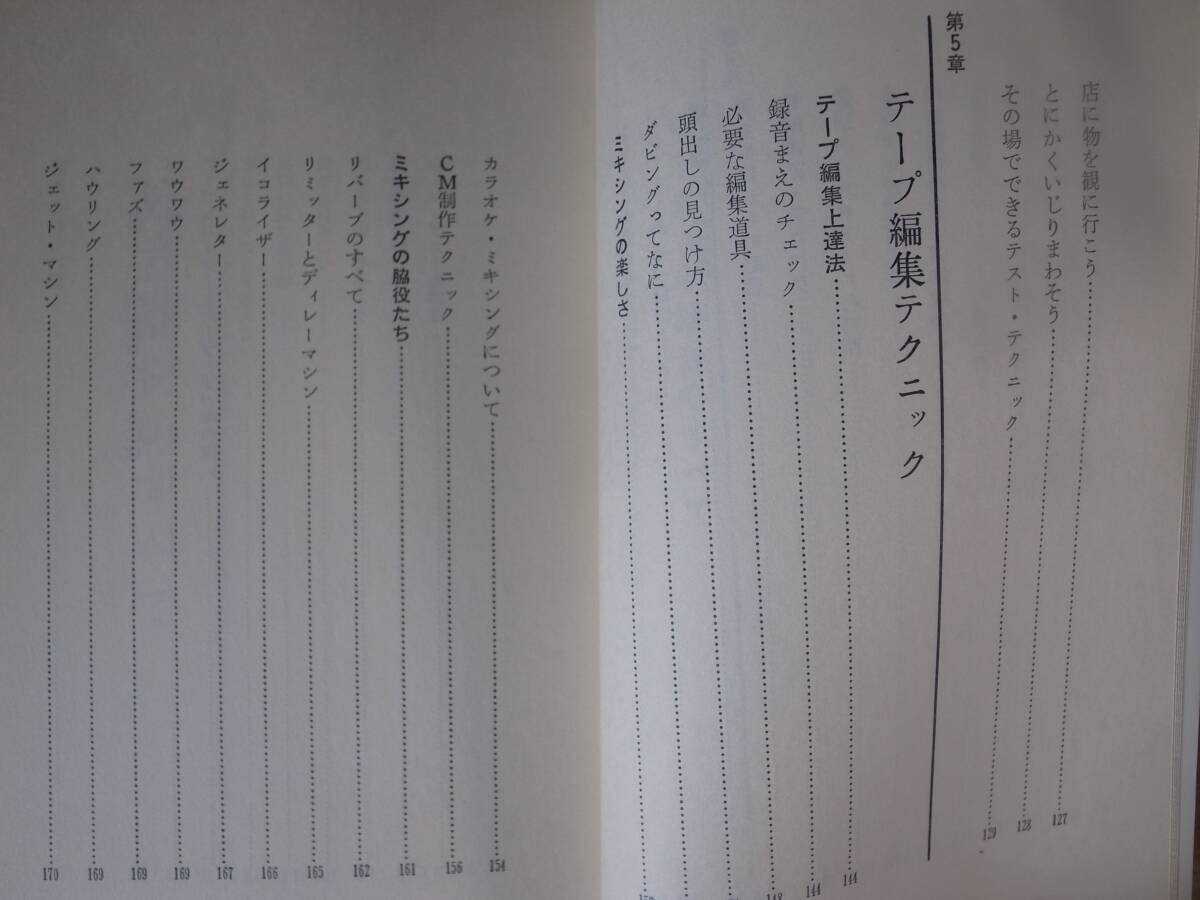 店に物を観に行こう……127
とにかくいじりまわそう……128
その場でできるテスト・テクニック……129
第5章
テープ編集テクニック
テープ編集上達法……144
録音まえのチェック……144
必要な編集道具……148
頭出しの見つけ方……
ダビングってなに……
ミキシングの楽しさ……
カラオケ・ミキシングについて……154
CM制作テクニック……156
ミキシングの脇役たち……161
リバーブのすべて……162
リミッターとディレーマシン……165
イコライザー……166
ジェネレター……167
ワウワウ……169
ファズ……169
ハウリング……169
ジェット・マシン……170